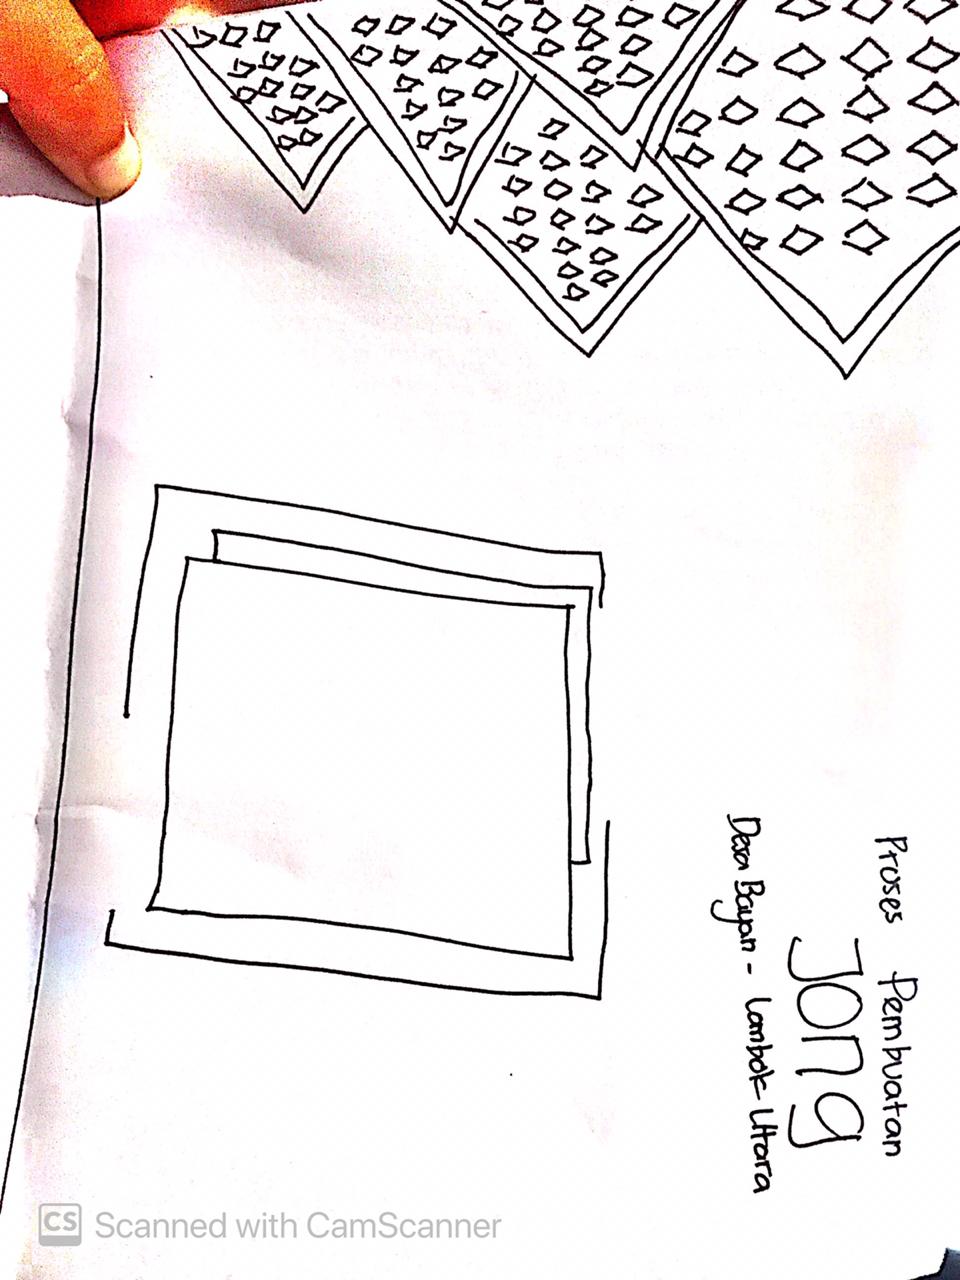 Proses Pembuatan
JONG
Desa Bayan - Lombok Utara
CS Scanned with CamScanner